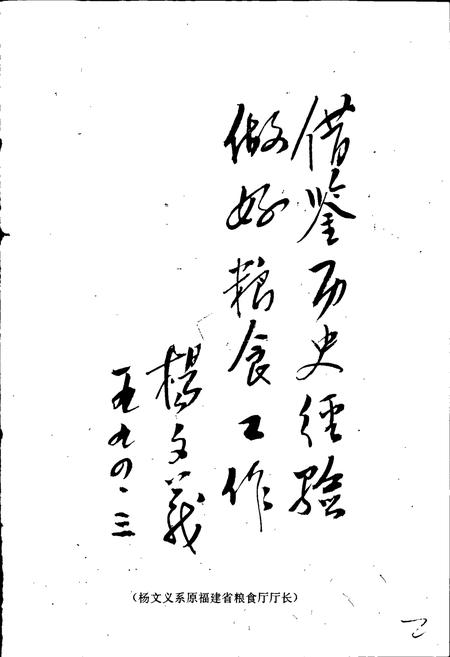 借鉴历史經驗
做好粮食工作
楊文義
一九九〇·三
（杨文义系原福建省粮食厅厅长）